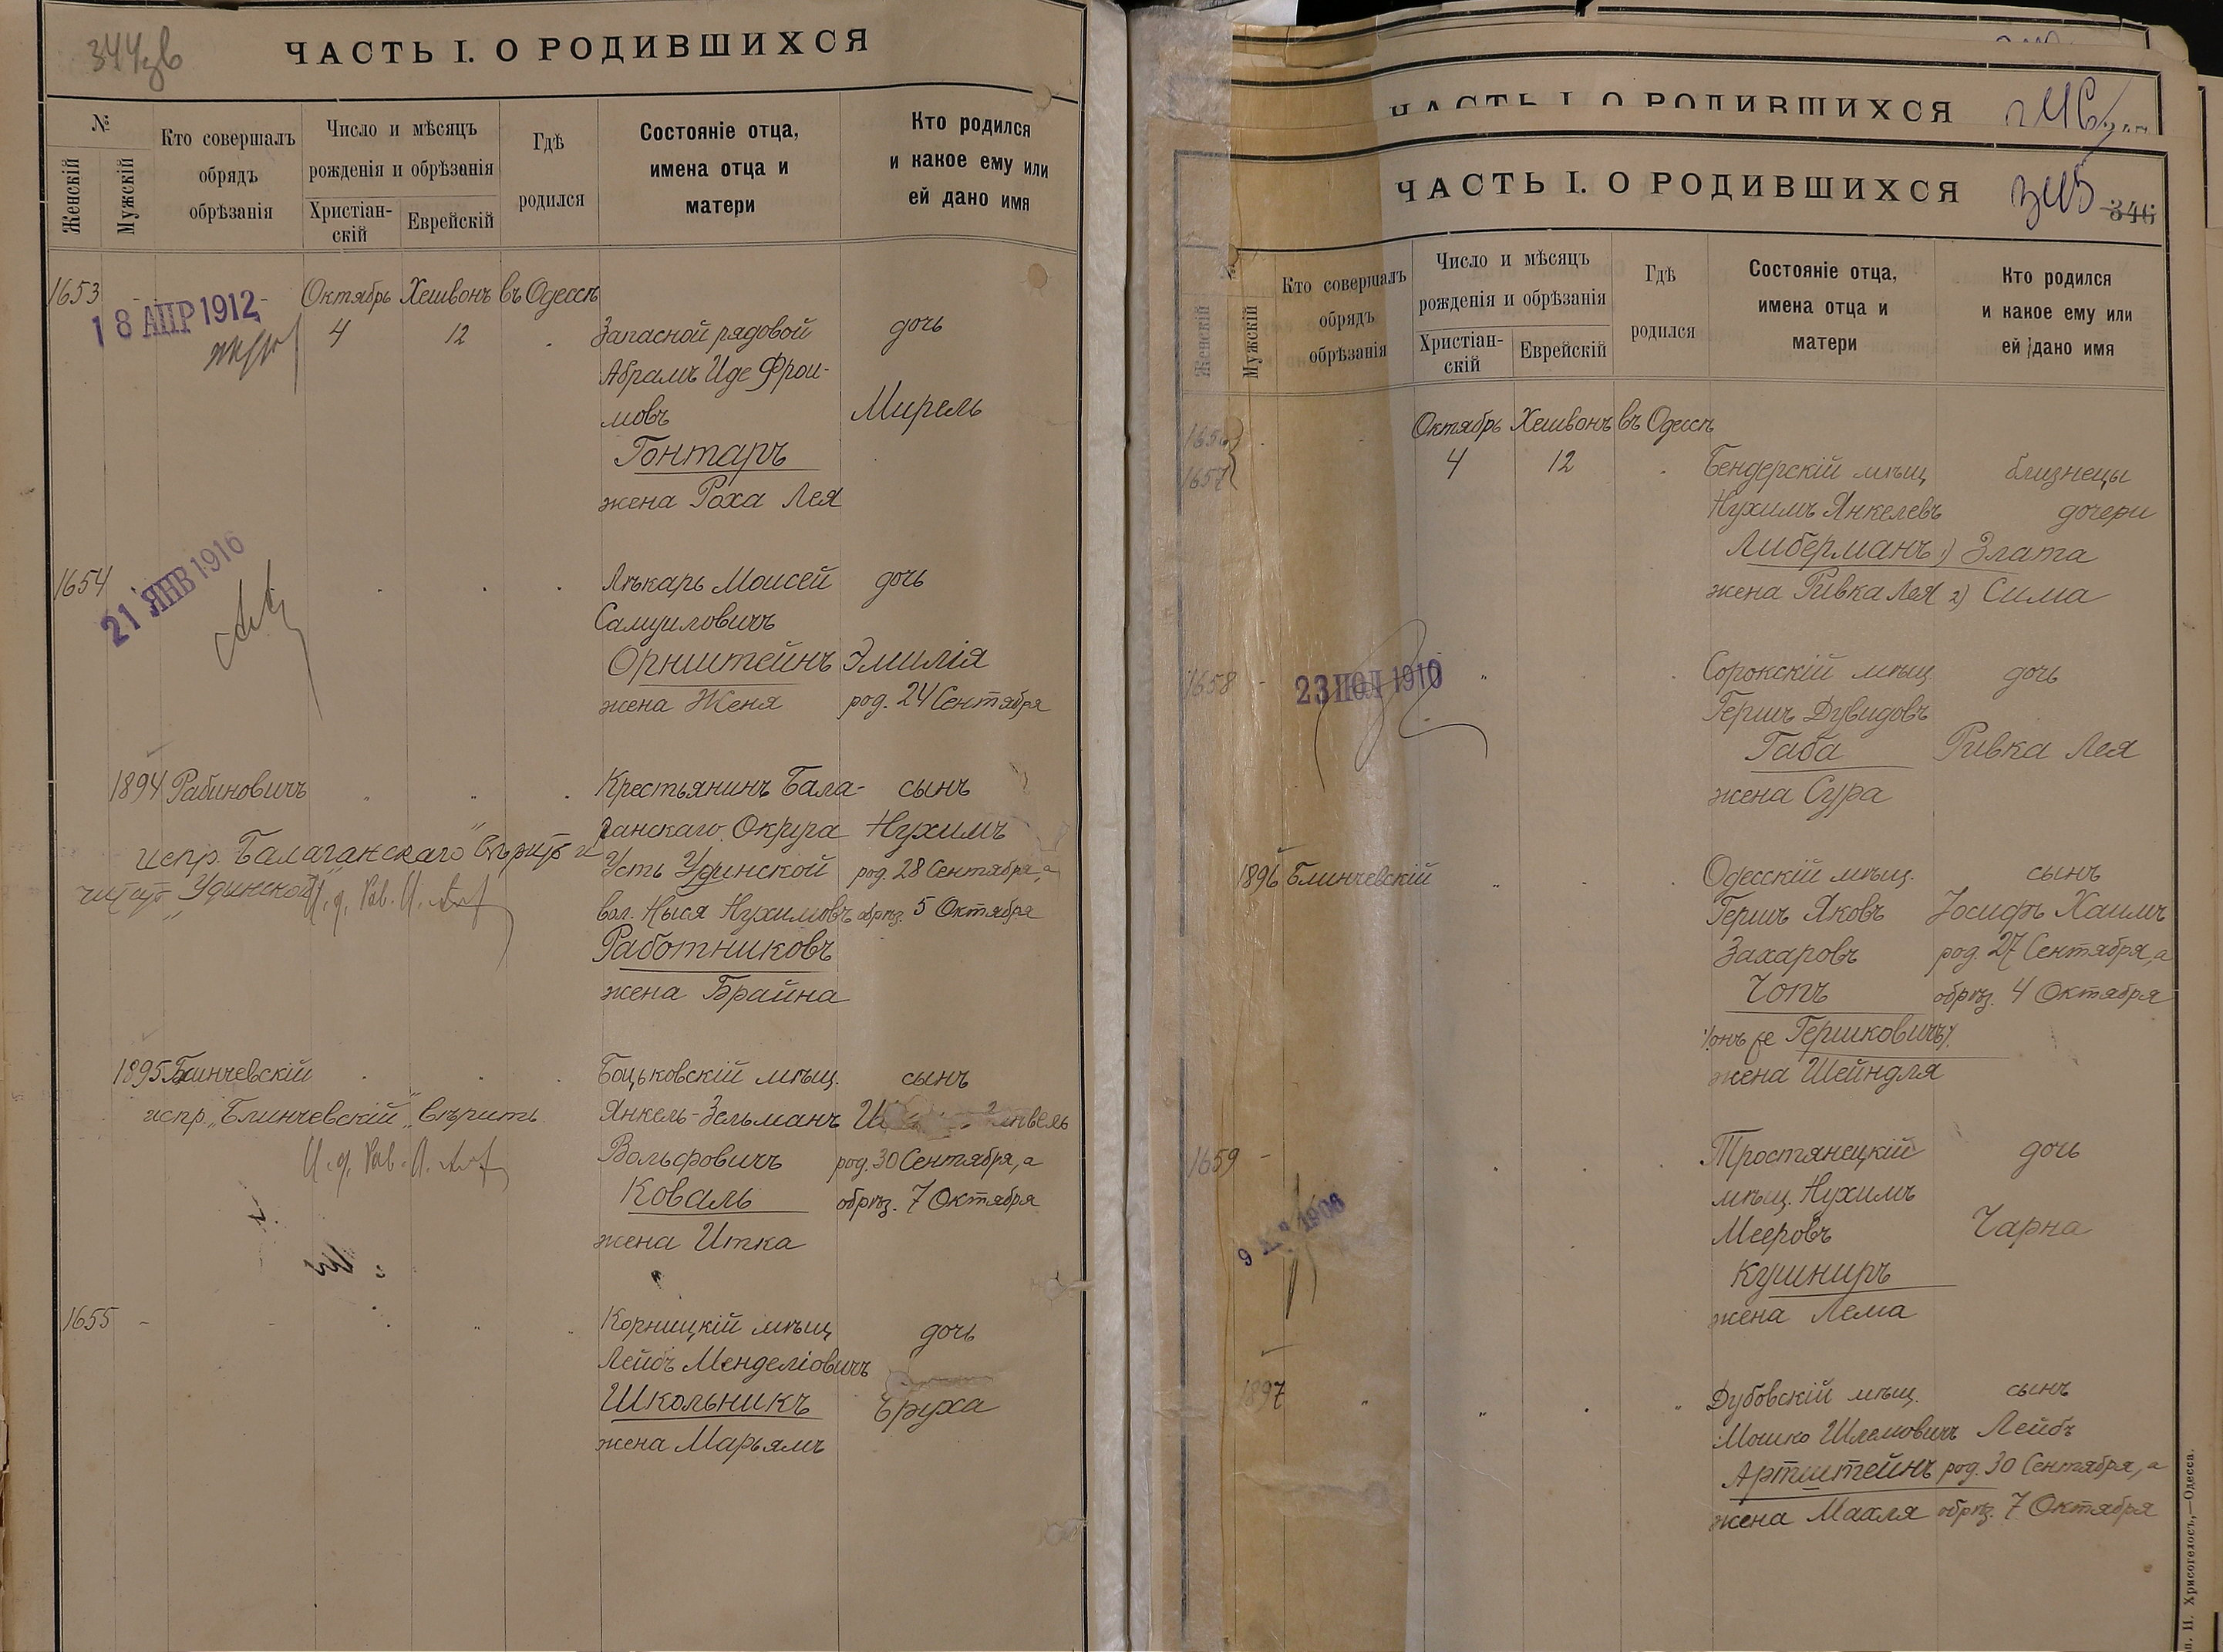 344об
ЧАСТЬ I. О РОДИВШИХСЯ
№
Женскій
Мужскій
Кто совершалъ
обрядъ
обрѣзанія
Число и мѣсяцъ
рожденія и обрѣзанія
Христіан-
скій
Еврейскій
Гдѣ
родился
Состояніе отца,
имена отца и
матери
Кто родился
и какое ему или
ей дано имя
1653 - - Октябрь Хешвонъ въ Одессѣ
18 АПР 1912
4 12 Запасной рядовой дочь
Абрамъ Иде Фрои-
мовъ Мирель
Гонтаръ
жена Роха Лея
1654 Лѣкарь Моисей дочь
21 ЯНВ 1916
Самуиловичъ
Орнштейнъ Эмилія
жена Женя род. 24 Сентября
1894 Рабиновичъ " " Крестьянинъ Бала- сынъ
ганскаго Округа Нухимъ
испр. "Балаганскаго" вѣрить и
Усть Удинской род. 28 Сентября, а
"Удинской" И. д. Рав.
вол. Ныся Нухимовъ обрѣз. 5 Октября
Работниковъ
жена Брайна
1895 Блинчевскій Боцьковскій мѣщ. сынъ
испр. "Блинчевскій" вѣрить
Янкель-Зельманъ
И. д. Рав.
Вольфовичъ род. 30 Сентября, а
Коваль обрѣз. 7 Октября
жена Итка
1655 - - " Корницкій мѣщ дочь
Лейбъ Менделіовичъ
Школьникъ Бруха
жена Марьямъ
ЧАСТЬ I. О РОДИВШИХСЯ
ЧАСТЬ I. О РОДИВШИХСЯ
345 346
№
Женскій
Мужскій
Кто совершалъ
обрядъ
обрѣзанія
Число и мѣсяцъ
рожденія и обрѣзанія
Христіан-
скій
Еврейскій
Гдѣ
родился
Состояніе отца,
имена отца и
матери
Кто родился
и какое ему или
ей дано имя
1656 Октябрь Хешвонъ въ Одессѣ
1657 4 12 Бендерскій мѣщ близнецы
Нухимъ Янкелевъ дочери
Либерманъ 1) Злата
жена Ривка Лея 2) Сима
1658 - " Сорокскій мѣщ. дочь
23 ІЮЛ 1910
Гершъ Дувидовъ
Габа Ривка Лея
жена Сура
1896 Блинчевскій " Одесскій мѣщ. сынъ
Гершъ Яковъ Іосифъ Хаимъ
Захаровъ род. 27 Сентября, а
Чопъ обрѣз. 4 Октября
онъ же Гершковичъ
жена Шейндля
1659 - Тростянецкій дочь
мѣщ. Нухимъ
Мееровъ Чарна
9 1908
Кушниръ
жена Лема
1897 " " " Дубовскій мѣщ. сынъ
Мошко Шлемовичъ Лейбъ
Артштейнъ род. 30 Сентября, а
жена Махля обрѣз. 7 Октября
п. Хрисогелосъ,—Одесса.